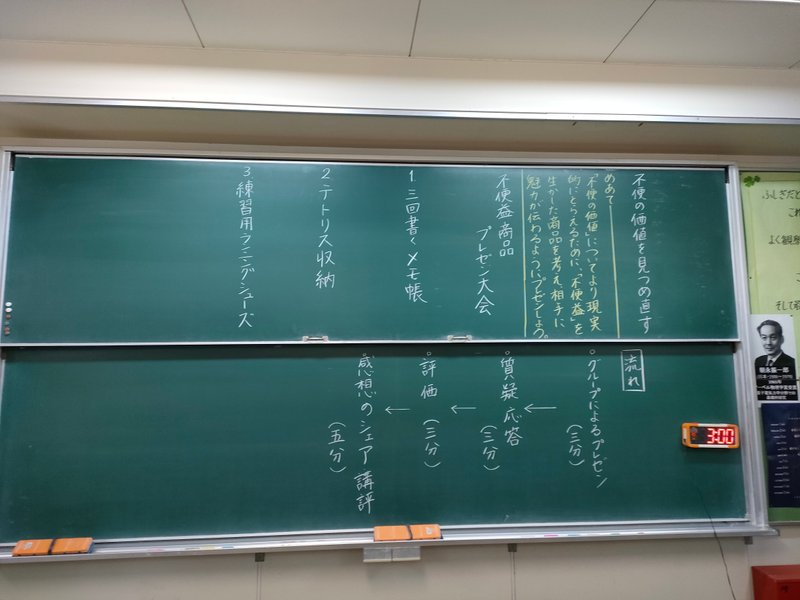 不便の価値を見つめ直す
めあて
「不便の価値」についてより現実
的にとらえるために、「不便益」を
生かした商品を考え、相手に
魅力が伝わるようにプレゼンしよう。
不便益商品
プレゼン大会
1.三回書くメモ帳
2.テトリス収納
3.練習用ランニングシューズ
流れ
・グループによるプレゼン
(三分)
←
・質疑応答
(三分)
←
・評価
(三分)
←
・感想のシェア 講評
(五分)
3:00
ふしぎだと
これ
よく観察
そして
朝永振一郎